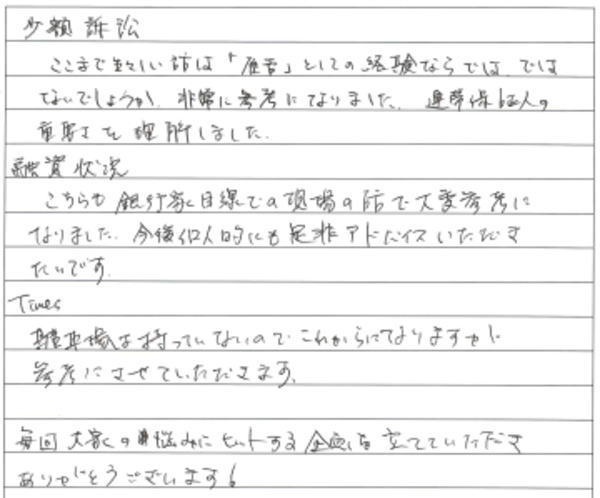 少額訴訟
ここまで生々しい話は「原告」としての経験ならでは、では
ないでしょうか。非常に参考になりました。連帯保証人の
重要さも理解しました。
融資状況
こちらも銀行家目線での現場の話で大変参考に
なりました。今後個人的にも是非アドバイスいただき
たいです。
Times
駐車場は持っていないのでこれからになりますが
参考にさせていただきます。
毎回大家の悩みにヒットする企画を立てていただき
ありがとうございます!